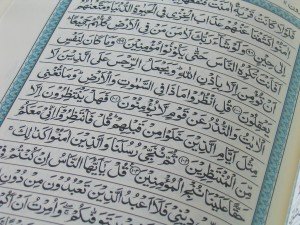 فَلَوْلَا كَانَتْ قَرْيَةٌ ءَامَنَتْ فَنَفَعَهَا
كَشَفْنَا عَنْهُمْ عَذَابَ الْخِزْىِ فِى الْحَيَوٰةِ الدُّنْيَا وَمَتَّعْنَٰهُمْ
إِلَىٰ حِينٍ ۝ وَلَوْ شَآءَ رَبُّكَ لَءَامَنَ مَن فِى الْأَرْضِ كُلُّهُمْ جَمِيعًا
أَفَأَنتَ تُكْرِهُ النَّاسَ حَتَّىٰ يَكُونُوا۟ مُؤْمِنِينَ ۝ وَمَا كَانَ لِنَفْسٍ
أَن تُؤْمِنَ إِلَّا بِإِذْنِ اللَّهِ وَيَجْعَلُ الرِّجْسَ عَلَى الَّذِينَ لَا
يَعْقِلُونَ ۝ قُلِ انظُرُوا۟ مَاذَا فِى السَّمَٰوَٰتِ وَالْأَرْضِ وَمَا تُغْنِى
الْءَايَٰتُ وَالنُّذُرُ عَن قَوْمٍ لَّا يُؤْمِنُونَ ۝ فَهَلْ يَنتَظِرُونَ إِلَّا
مِثْلَ أَيَّامِ الَّذِينَ خَلَوْا۟ مِن قَبْلِهِمْ قُلْ فَانتَظِرُوٓا۟ إِنِّى مَعَكُم
مِّنَ الْمُنتَظِرِينَ ۝ ثُمَّ نُنَجِّى رُسُلَنَا وَالَّذِينَ ءَامَنُوا۟ كَذَٰلِكَ
حَقًّا عَلَيْنَا نُنجِ الْمُؤْمِنِينَ ۝ قُلْ يَٰٓأَيُّهَا النَّاسُ إِن كُنتُمْ
دِينِى فَلَآ أَعْبُدُ الَّذِينَ تَعْبُدُونَ مِن دُونِ
وَأُمِرْتُ أَنْ